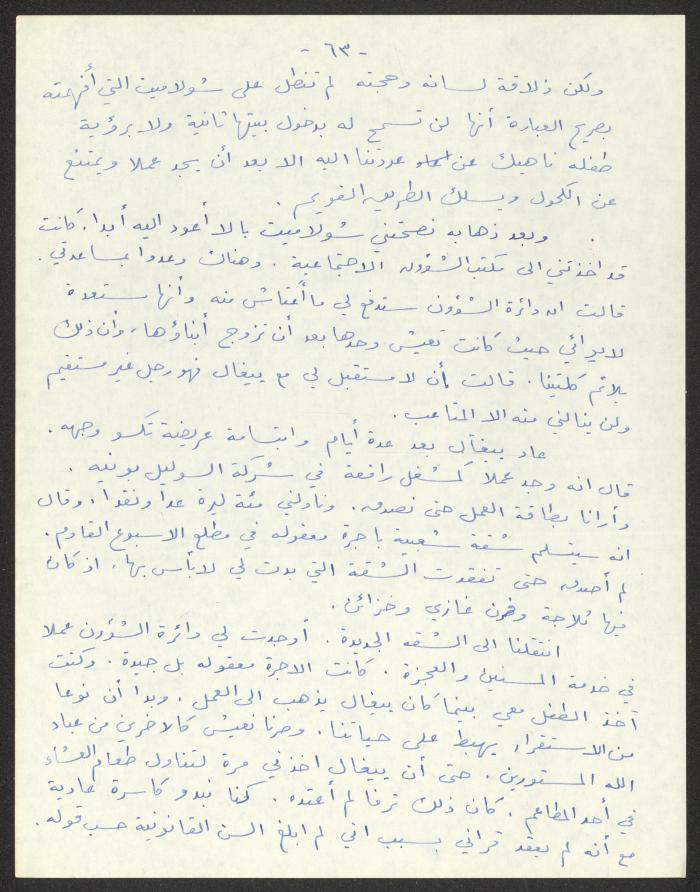 - ٦٣ -
ولكن ذلاقة لسانه وحجته لم تنطل على شولاميت التي أفهمته
بصريح العبارة أنها لن تسمح له بدخول بيتها ثانية ولا برؤية
طفله ناهيك عن عودتنا اليه الا بعد أن يجد عملا ويمتنع
عن الكحول ويسلك الطريق القويم .
وبعد ذهابه نصحتني شولاميت بالا أعود اليه أبدا . كانت
قد اخذتني الى مكتب الشؤون الاجتماعية . وهناك وعدوا بمساعدتي .
قالت ان دائرة الشؤون ستدفع لي ما أعتاش منه وأنها مستعدة
لايوائي حيث كانت تعيش وحدها بعد أن تزوج أبناؤها ، وأن ذلك
يلائم كلتينا . قالت بأن لا مستقبل لي مع ييغال فهو رجل غير مستقيم
ولن ينالني منه الا المتاعب .
عاد ييغال بعد عدة أيام وابتسامة عريضة تكسو وجهه .
قال انه وجد عملا كمشغل رافعة في شركة السوليل بونيه .
وأرانا بطاقة العمل حتى نصدقه . وناولني مئة ليرة عدا ونقدا . وقال
انه سيتسلم شقة شعبية باجرة معقوله في مطلع الاسبوع القادم .
لم أصدقه حتى تفقدت الشقة التي بدت لي لا بأس بها ، اذ كان
فيها ثلاجة وفرن غازي وخزائن .
انتقلنا الى الشقه الجديدة . أوجدت لي دائرة الشؤون عملا
في خدمة المسنين والعجزة . كانت الاجرة معقوله بل جيدة . وكنت
آخذ الطفل معي بينما كان ييغال يذهب الى العمل . وبدا أن نوعا
من الاستقرار يهبط على حياتنا . وصرنا نعيش كالاخرين من عباد
الله المستورين . حتى أن ييغال اخذني مرة لتناول طعام العشاء
في أحد المطاعم . كان ذلك ترفا لم أعتده . كنا نبدو كاسرة عادية
مع أنه لم يعقد قراني بسبب اني لم ابلغ السن القانونية حسب قوله .